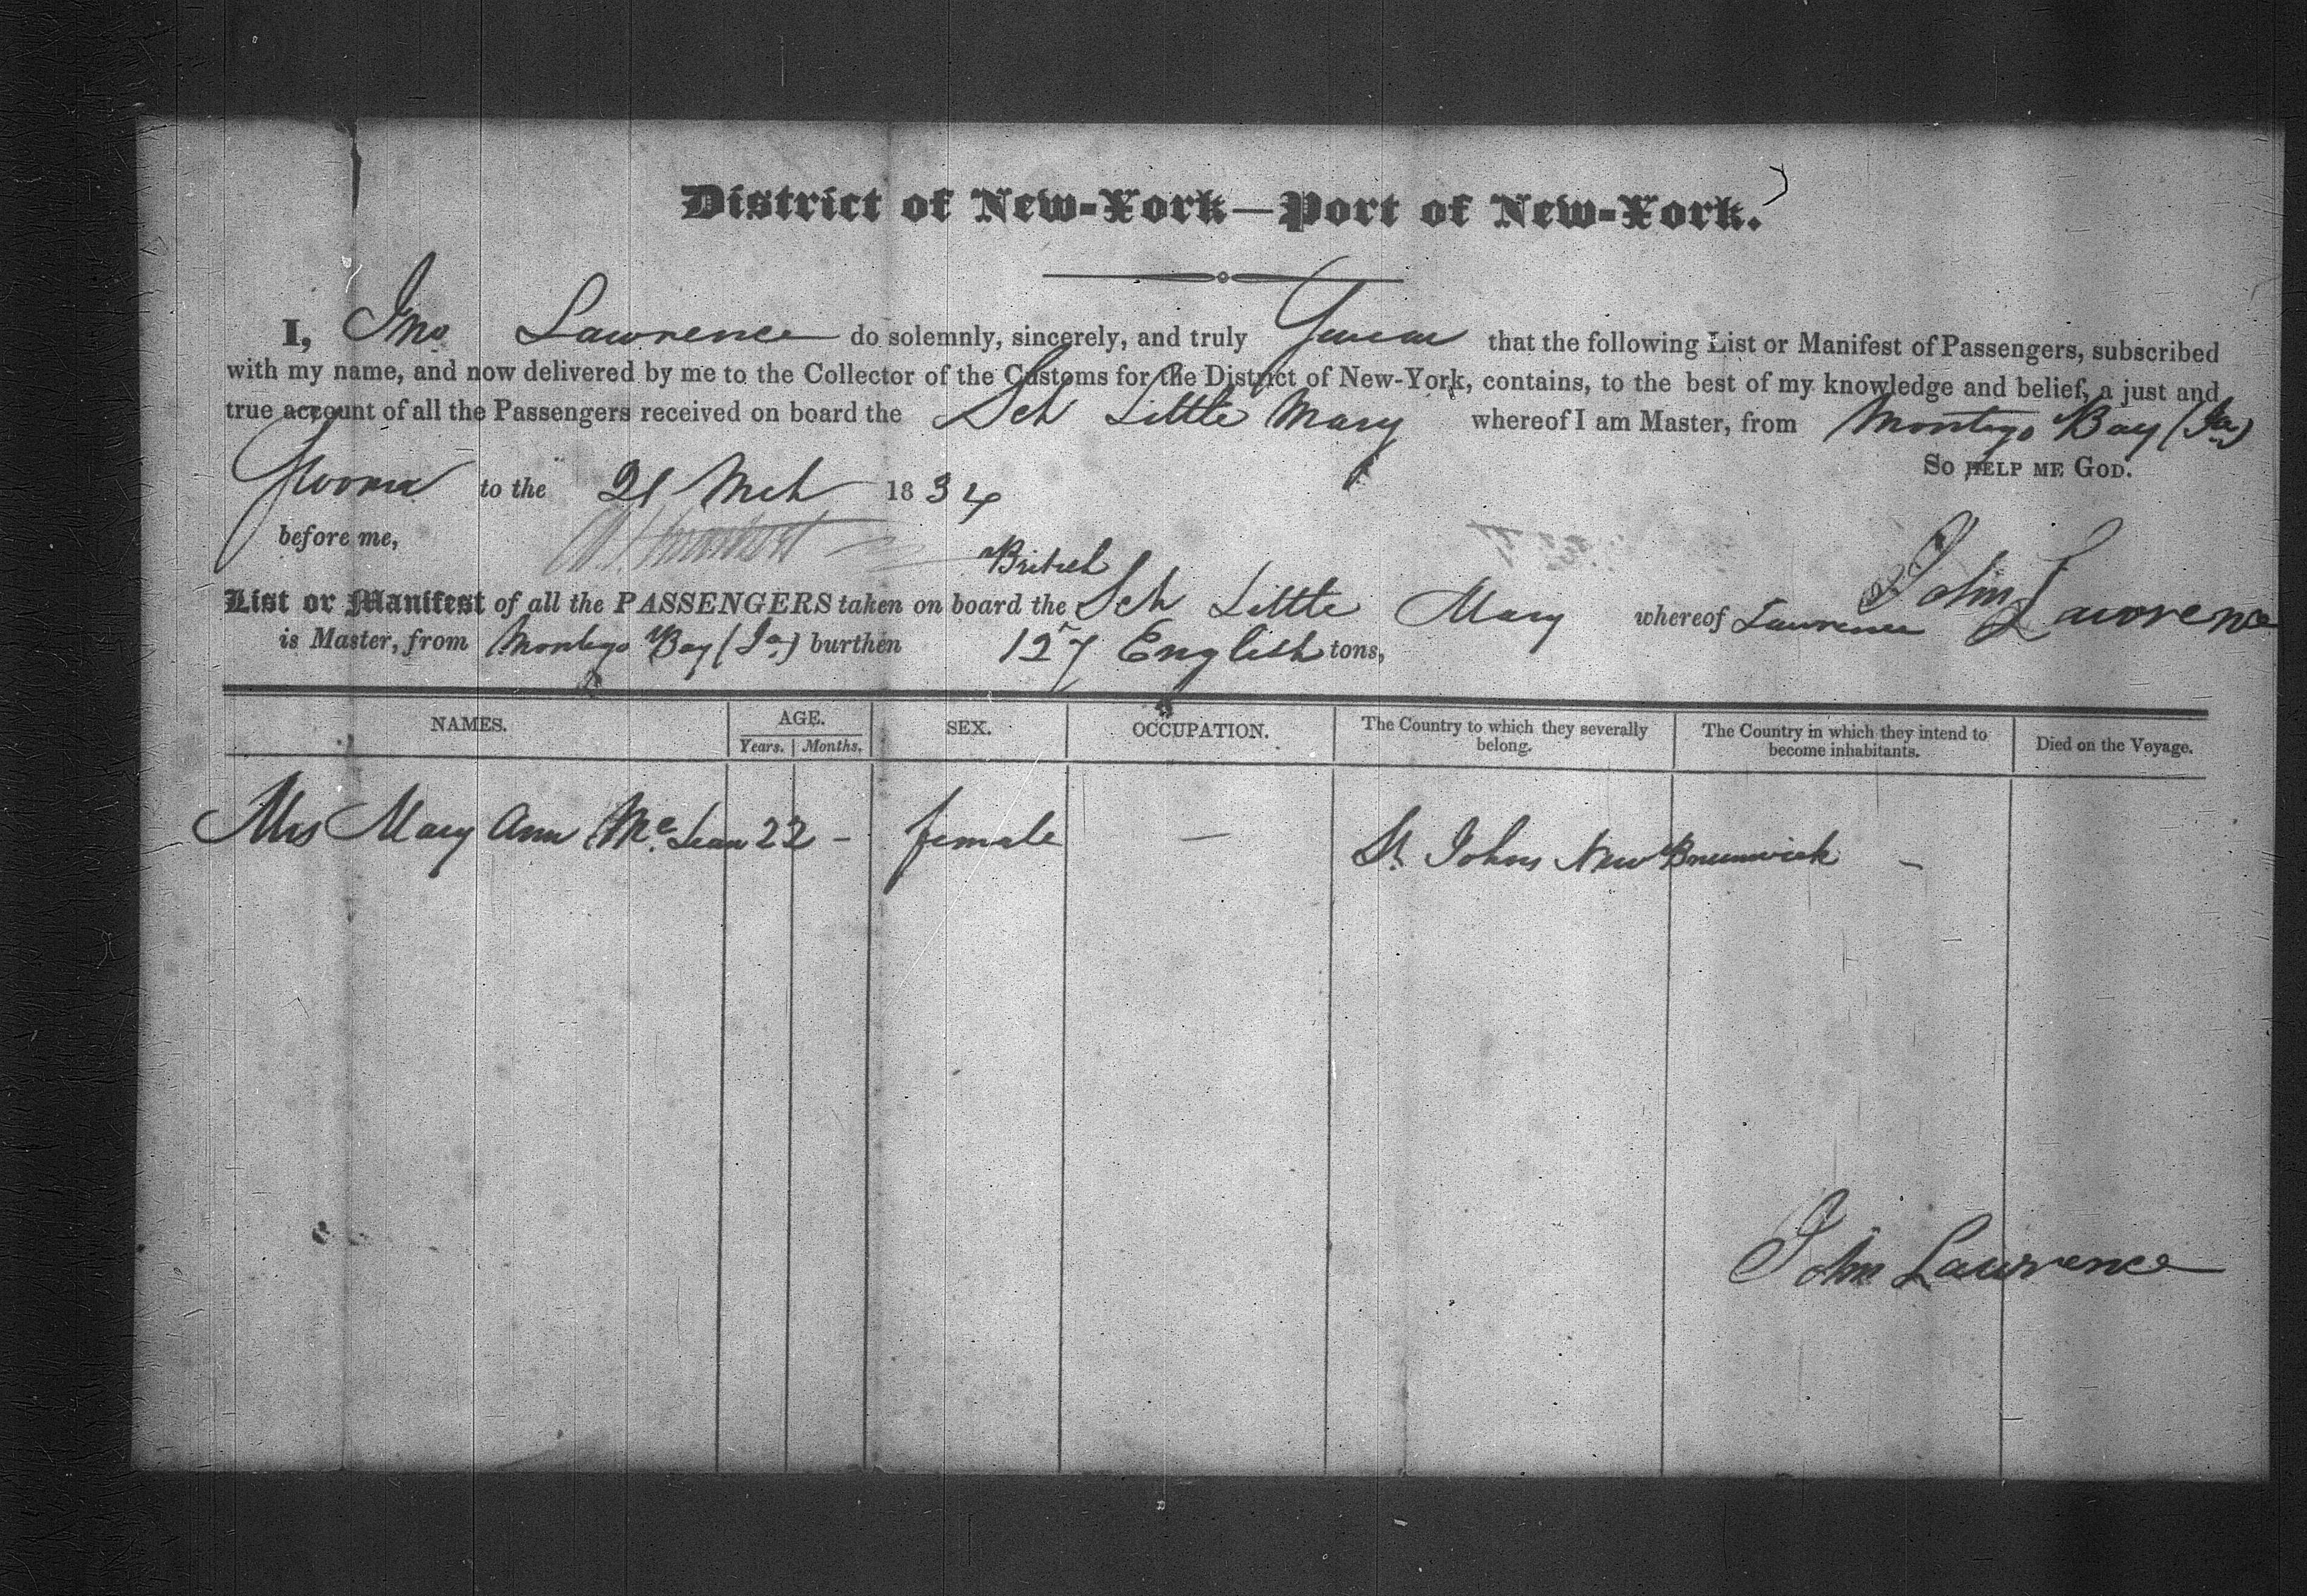 District of New-York—Port of New-York.
I, Jno Lawrence do solemnly, sincerely, and truly Swear that the following List or Manifest of Passengers, subscribed
with my name, and now delivered by me to the Collector of the Customs for the District of New-York, contains, to the best of my knowledge and belief, a just and
true account of all the Passengers received on board the Sch Little Mary whereof I am Master, from Montego Bay (Ja)
So HELP ME GOD.
Sworn to the 21 Mch 1834
before me,
British
List or Manifest of all the PASSENGERS taken on board the Sch Little Mary whereof Lawrence John Lawrence
is Master, from Montego Bay (Ja) burthen 127 English tons,
NAMES. AGE. SEX. OCCUPATION. The Country to which they severally belong. The Country in which they intend to become inhabitants. Died on the Voyage.
Years. Months.
Mrs Mary Ann Mc.Lean 22 - female — St. Johns New Brunswick -
John Lawrence